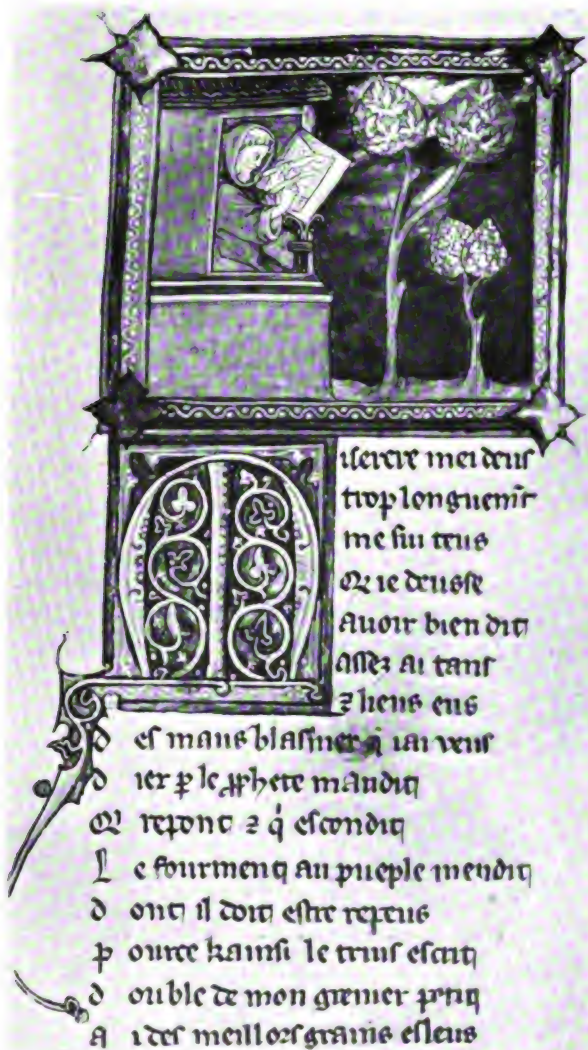 Miserere mei deus
trop longuem̄t
me sui teus
Qe ie deusse
auoir bien dit
assez ai tans
⁊ liens eus
des maus blasmer q̇ iai veus
diex ꝑ le ꝓphete maudit
Q repont ⁊ q̇ escondit
Le fourment au pueple mendit
dont il doit estre repeus
pource kainsi le truis escrit
double de mon grenier petit
ai des meillors grains esleus